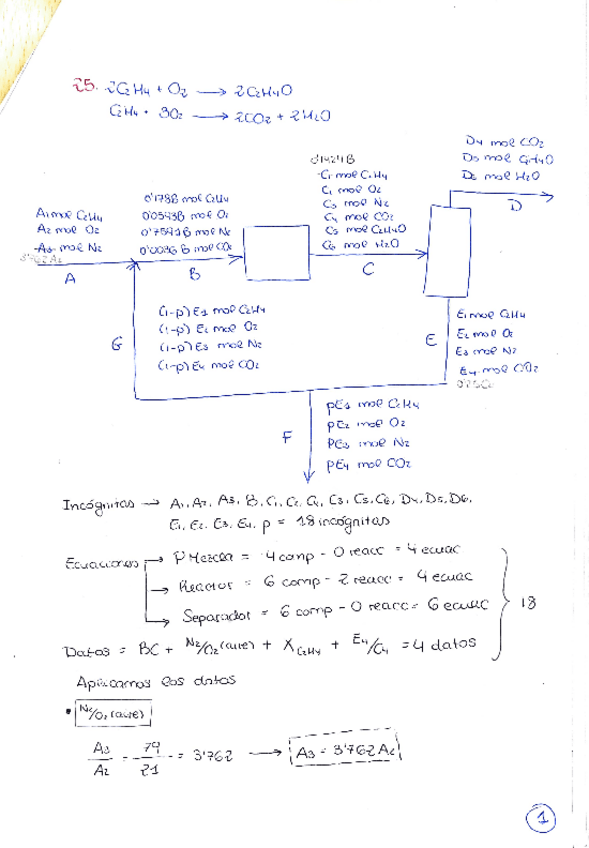 25. 2C2H4 + O2 → 2C2H4O
C2H4 + 3O2 → 2CO2 + 2H2O
D4 mol CO2
D5 mol C2H4O
D6 mol H2O
D
0'1424B
C1 mol C2H4
C2 mol O2
C3 mol N2
C4 mol CO2
C5 mol C2H4O
C6 mol H2O
C
0'1788 mol C2H4
0'0543B mol O2
0'7591B mol N2
0'0076 B mol CO2
B
A1 mol C2H4
A2 mol O2
A3 mol N2
3'762A2
A
G
(1-p) E1 mol C2H4
(1-p) E2 mol O2
(1-p) E3 mol N2
(1-p) E4 mol CO2
E
E1 mol C2H4
E2 mol O2
E3 mol N2
E4 mol CO2
F
pE1 mol C2H4
pE2 mol O2
pE3 mol N2
pE4 mol CO2
Incógnitas → A1, A2, A3, B, C1, C2, C4, C3, C5, C6, D4, D5, D6,
E1, E2, E3, E4, p = 18 incógnitas
Ecuaciones → P Mezcla = 4 comp - 0 reacc = 4 ecuac
→ Reactor = 6 comp - 2 reacc = 4 ecuac
→ Separador = 6 comp - 0 reacc = 6 ecuac
18
Datos = BC + N2/O2 (aire) + X C2H4 + E4/C4 = 4 datos
Aplicamos los datos
• N2/O2 (aire)
A3/A2 = 79/21 = 3'762 → A3 = 3'762 A2
1